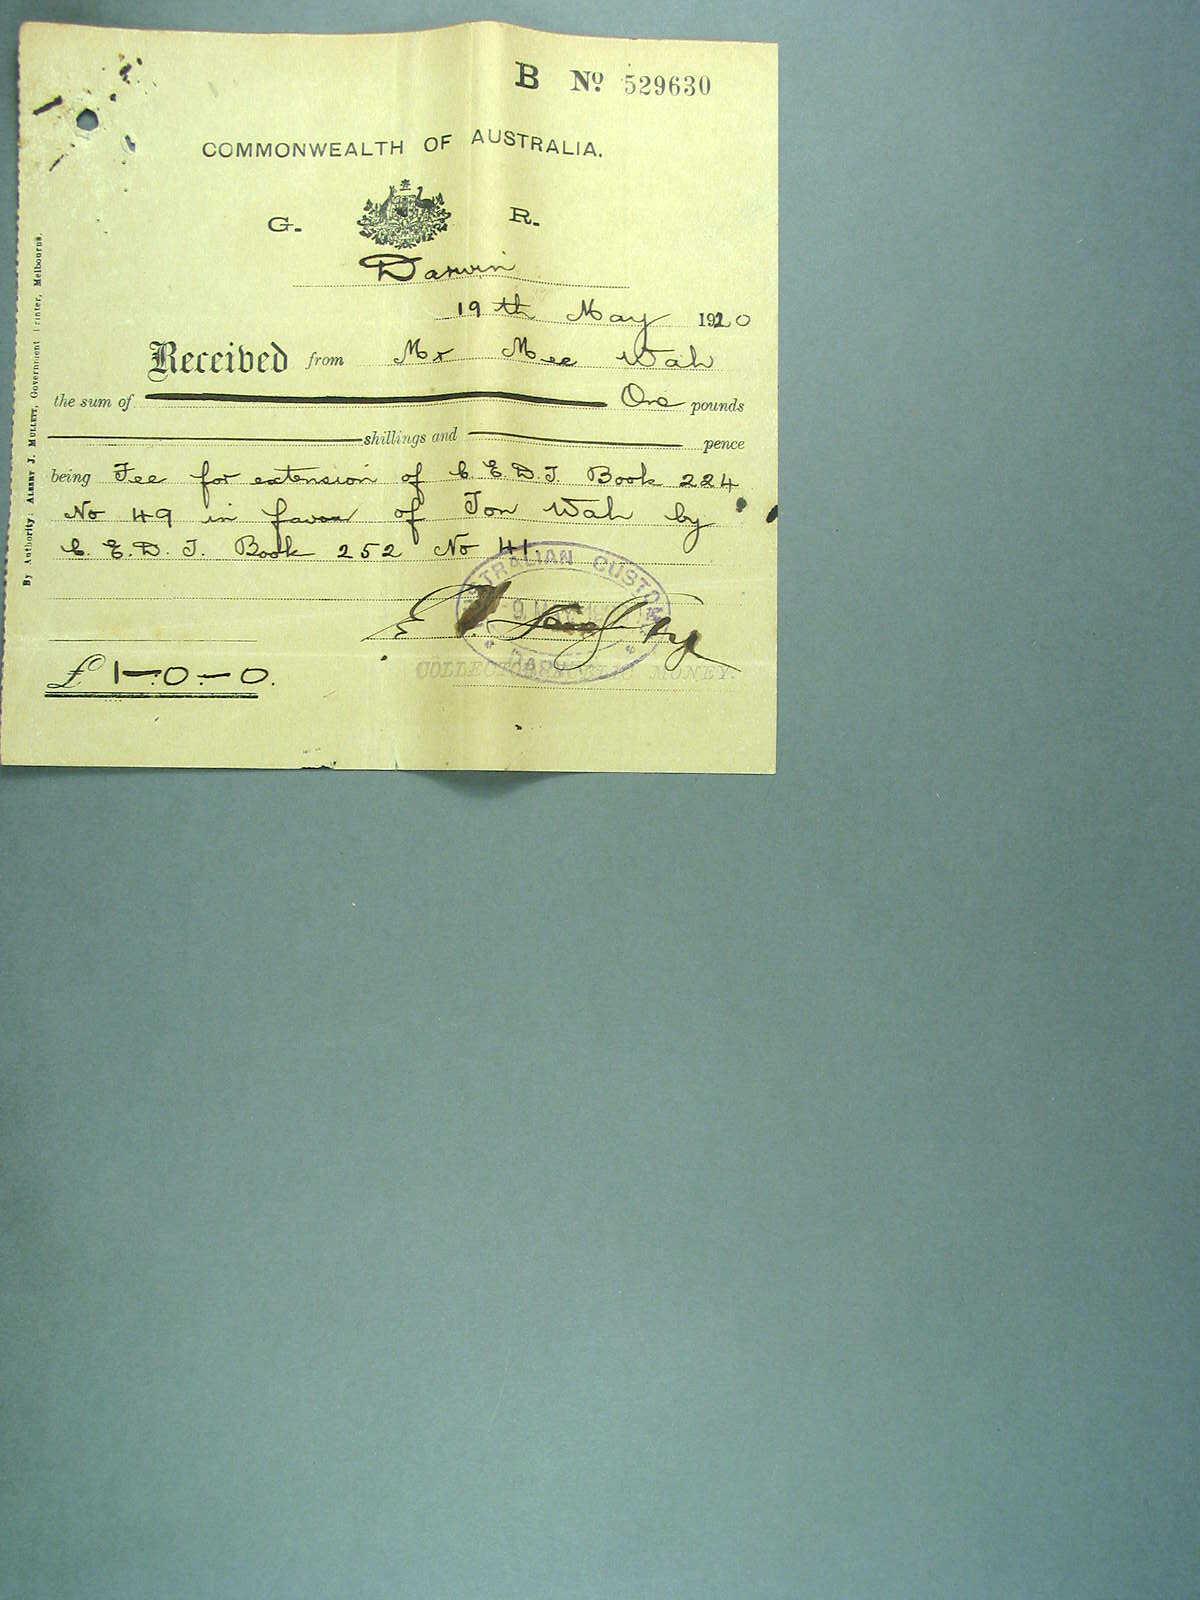 B No. 529630
COMMONWEALTH OF AUSTRALIA.
G. R.
Darwin
19th May 1920
Received from Mr Mee Wah
the sum of One pounds
shillings and pence
being Fee for extension of C.E.D.T. Book 224
No 49 in favour of Ton Wah by
C.E.D.T. Book 252 No 41
AUSTRALIAN CUSTOMS
DARWIN
COLLECTOR OF PUBLIC MONEY.
£ 1-0-0.
By Authority: ALBERT J. MULLETT, Government Printer, Melbourne.